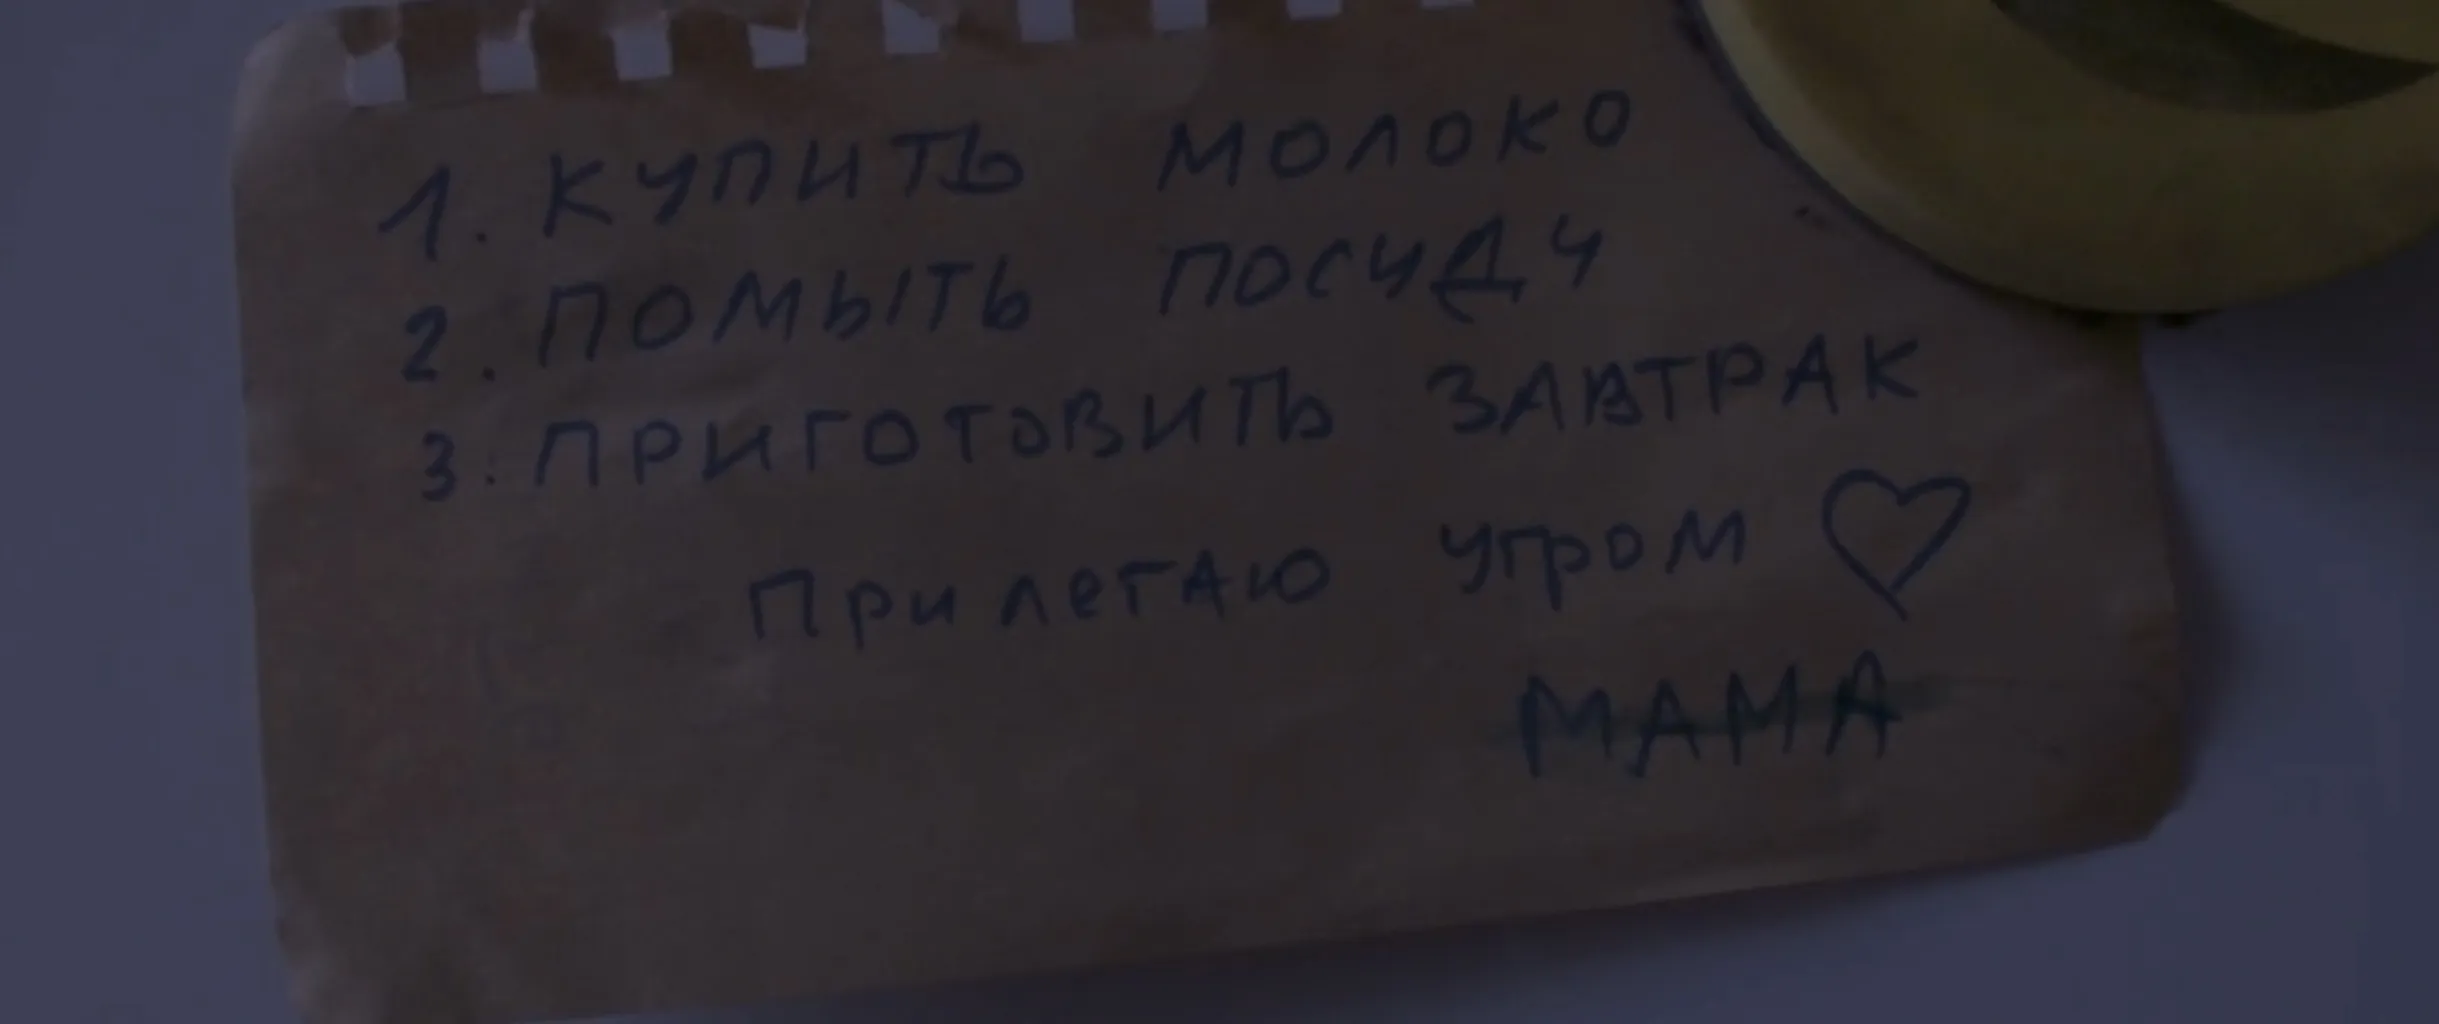 1. КУПИТЬ МОЛОКО
2. ПОМЫТЬ ПОСУДУ
3. ПРИГОТОВИТЬ ЗАВТРАК
Прилетаю утром ♡
МАМА